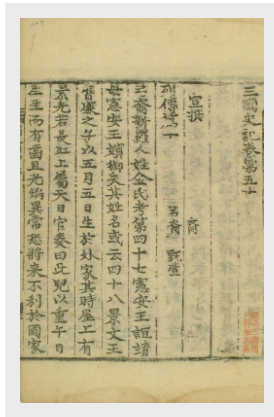 三國史記卷第五十
宣撰
列傳第十　弓裔　甄萱
弓裔新羅人姓金氏考第四十七憲安王誼靖
母憲安王嬪御失其姓名或云四十八景文王
膺廉之子以五月五日生於外家其時屋上有
素光若長虹上屬天日官奏曰此兒以重午日
生生而有齒且光焰異常恐將來不利於國家